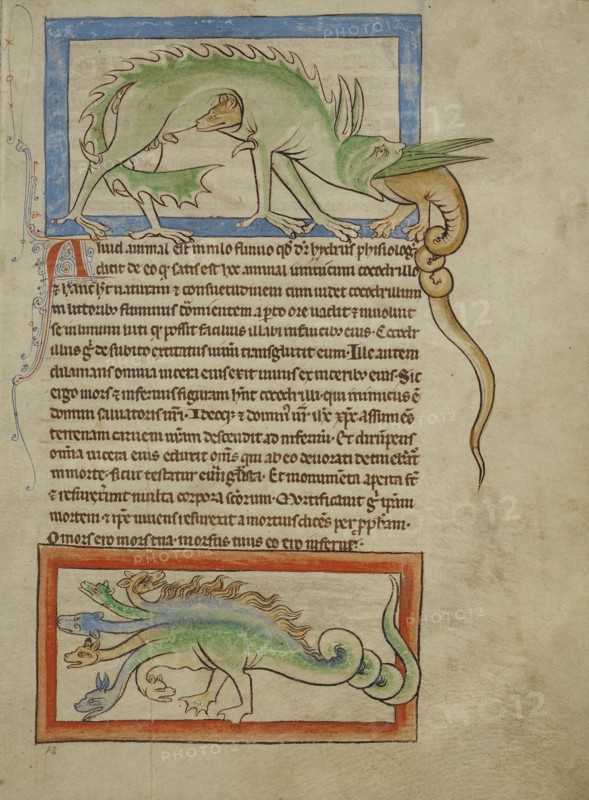 PHOTO12
Aliud animal est in nilo fluuio qd dr hydrus phisiolog
dicit de eo q satis est hoc animal inimicum cocodrillo
& hanc ht naturam & consuetudinem cum uidet cocodrillum
in littorib fluminis dormientem apto ore uadit & inuoluit
se in limum luti q possit facilius illabi in faucib eius. Cocodr
illus g de subito excitatus uiuum transglutit eum. Ille autem
dilanians omnia uiscera eius exit uiuus ex uiscerib eius. Sic
ergo mors & infernus figuram hnt cocodrilli. qui inimicus e
domini saluatoris nri. Ideoq & domin nr ihc xpc assumens
terrenam carnem nram descendit ad infernu. Et dirumpens
omia uiscera eius eduxit oms qui ab eo deuorati detinebant
in morte. sicut testatur euuglista. Et monumeta aperta st
& resurrexerunt multa corpora scorum. Mortificauit g ipam
mortem & ipe uiuens resurrexit a mortuis dices per ppham.
O mors ero mors tua. morsus tuus ero inferne.
PHOTO12